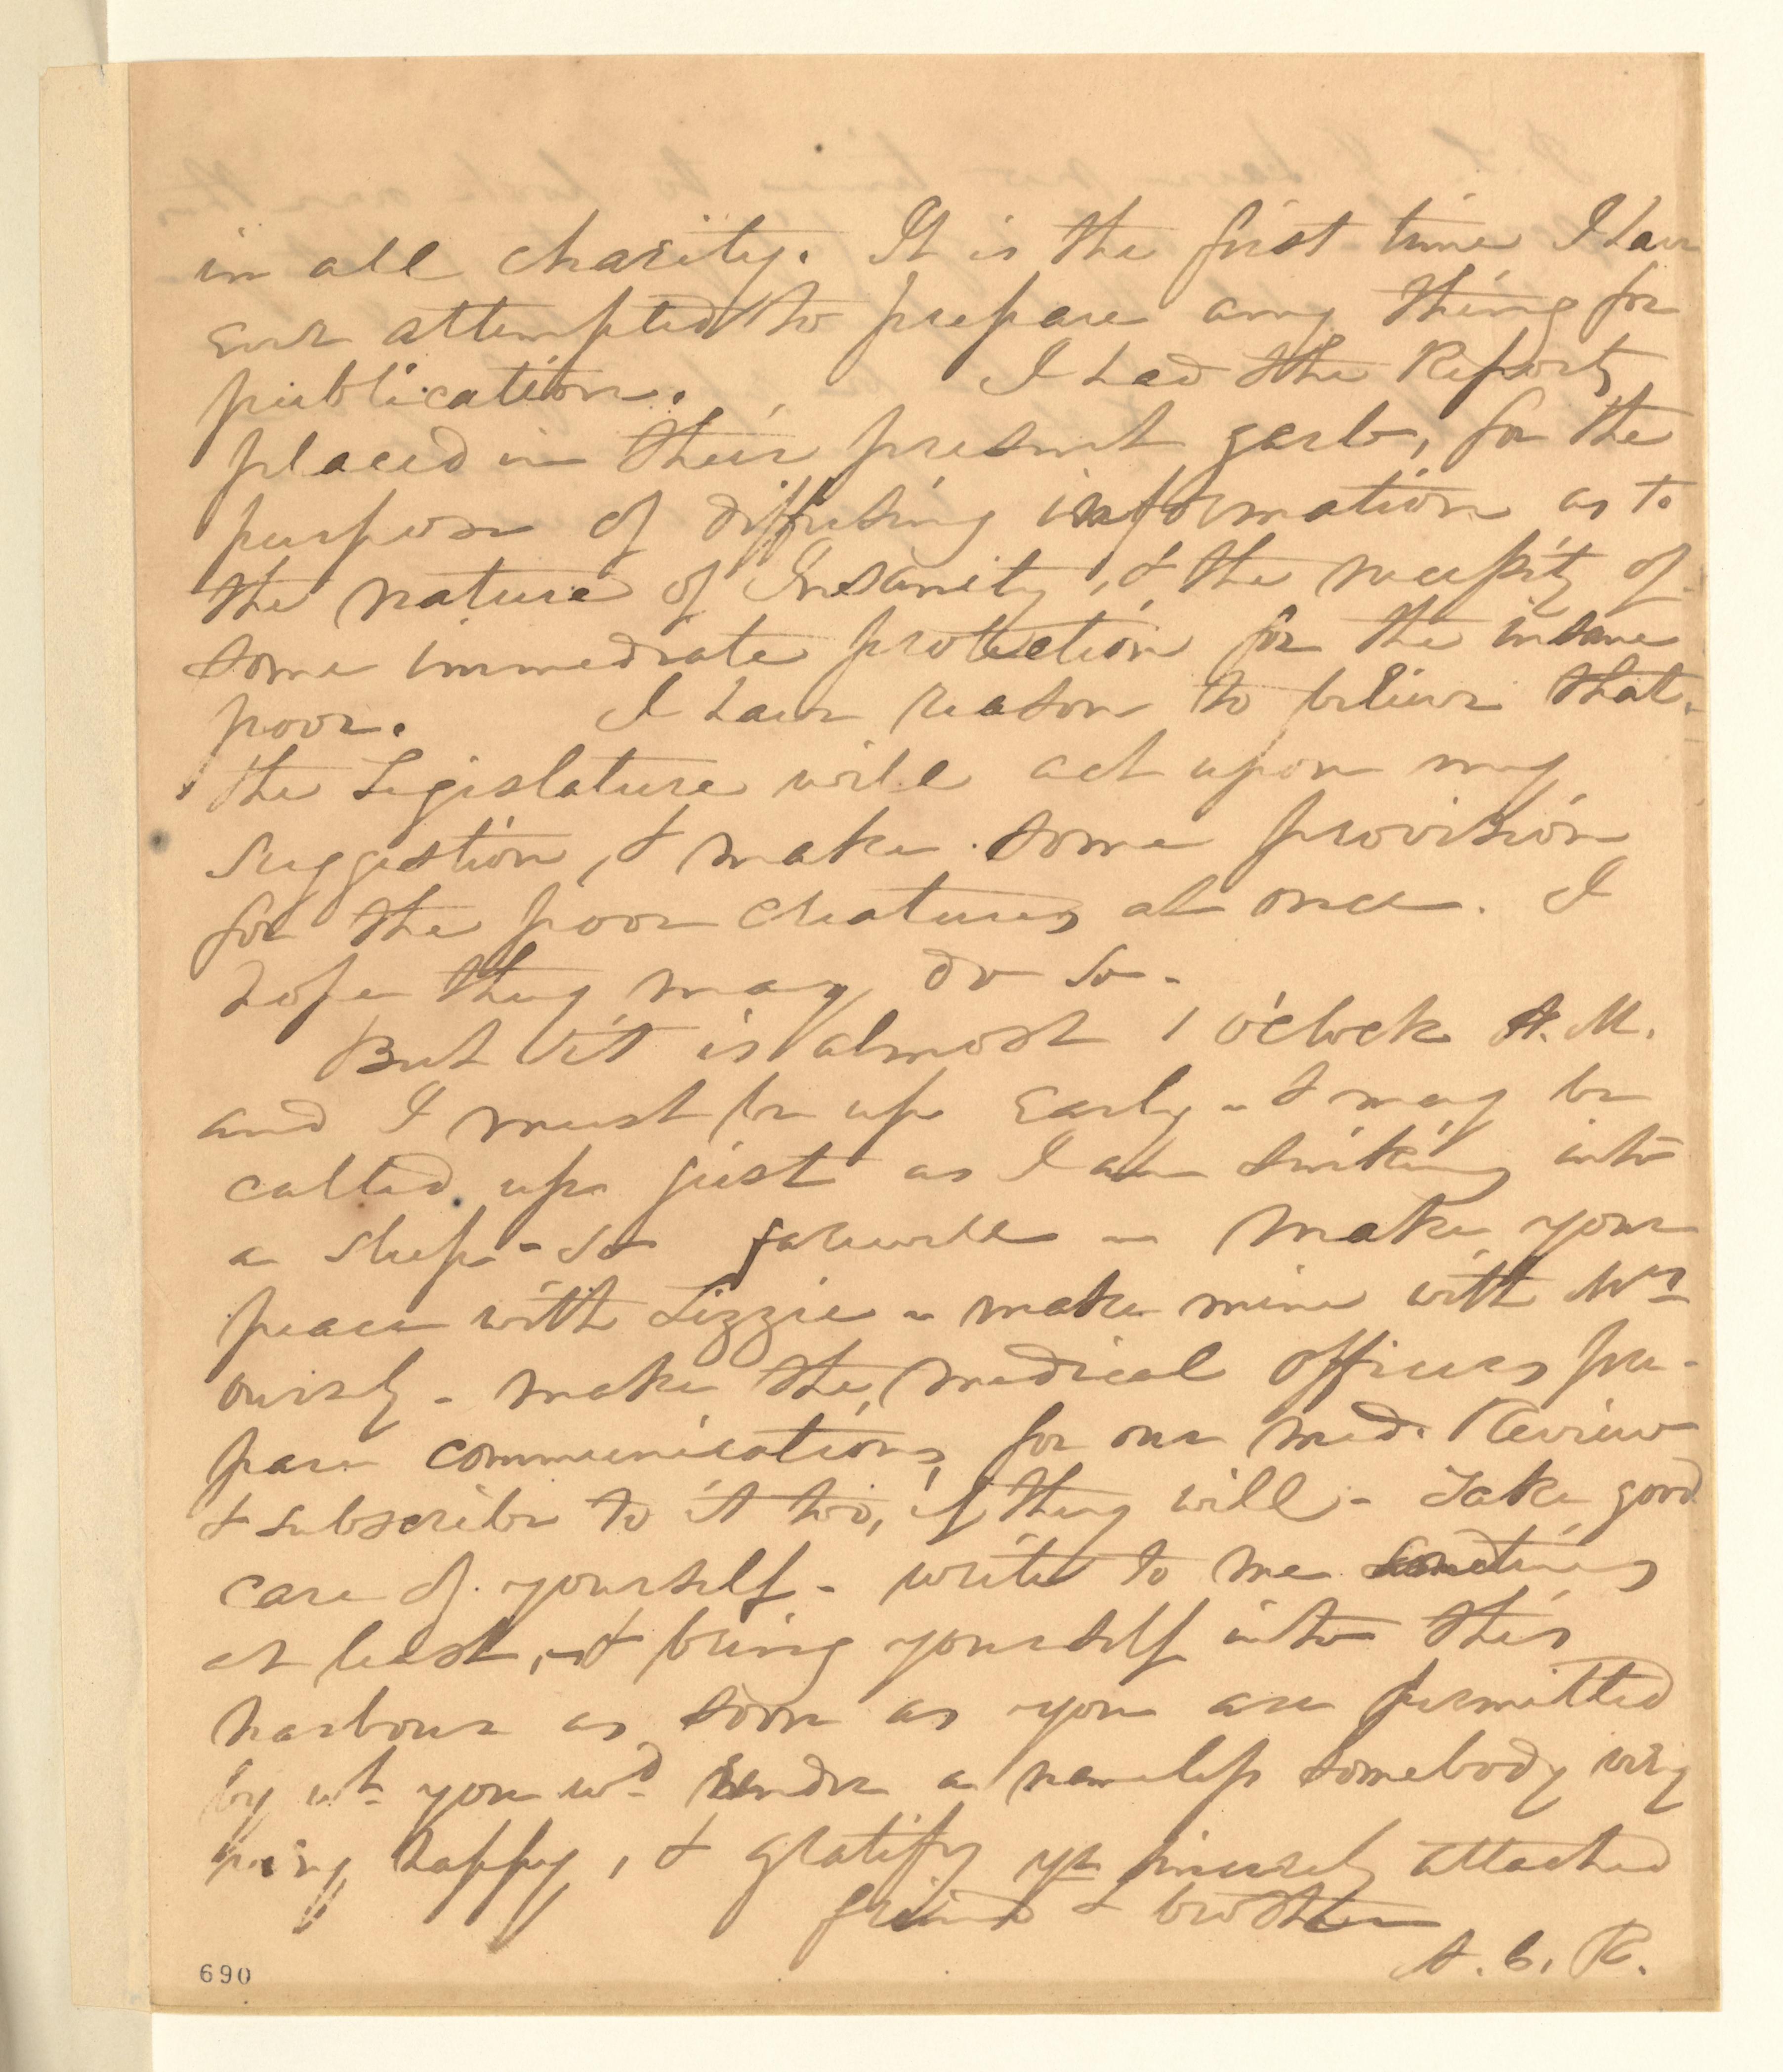 in all charity. It is the first time I have
ever attempted to prepare any thing for
publication. I had the Reports
placed in their present garb, for the
purpose of diffusing information as to
the nature of Insanity, & the necessity of
some immediate protection for the insane
poor. I have reason to believe that
the Legislature will act upon my
suggestion, & make some provision
for the poor creatures at once. I
hope they may do so.
But it is almost 1 o'clock A.M.
and I must be up early - & may be
called up just as I am sinking into
a sleep - so farewell - make your
peace with Lizzie - make mine with Mrs
- make the medical officers pre-
pare communications for our med. Review
& subscribe to it too, if they will - Take good
care of yourself - write to me sometimes
at least, - & bring yourself into this
harbour as soon as you are permitted
by wh you wd render a nameless somebody very
very happy, & gratify yr sincerely attached
friend & brother
R.
690